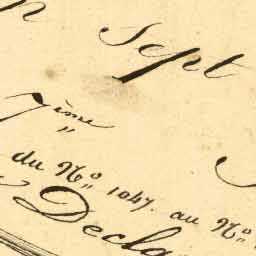 Sept
7ème
du Nº 1047. au Nº
Decla